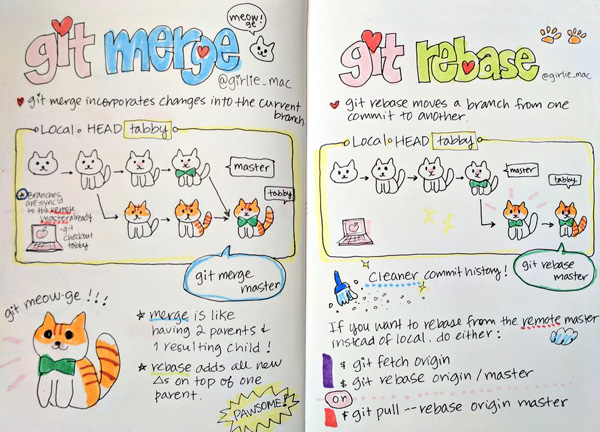 git merge
meow!
ge
@girlie_mac
git merge incorporates changes into the current
branch.
Local HEAD tabby
master
tabby
Branches
are sync'd
to the remote
master already
git
checkout
tabby
git merge
master
git meow-ge !!!
merge is like
having 2 parents &
1 resulting child!
rebase adds all new
Δs on top of one
parent.
PAWSOME!
git rebase
@girlie_mac
git rebase moves a branch from one
commit to another.
Local HEAD tabby
master
tabby
git rebase
master
Cleaner commit history!
If you want to rebase from the remote master
instead of local, do either:
$ git fetch origin
$ git rebase origin/master
or
$ git pull --rebase origin master